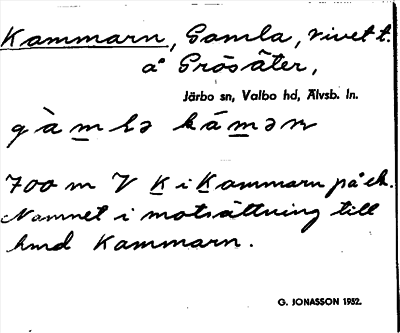 Kammarn, Gamla, rivet t.
å Grösäter,
Järbo sn, Valbo hd, Älvsb. ln.
gàm̲lə kám̲ən
700 m V K̲ i K̲ammarn på ek.
Namnet i motsättning till
hmd Kammarn.
G. JONASSON 1952.